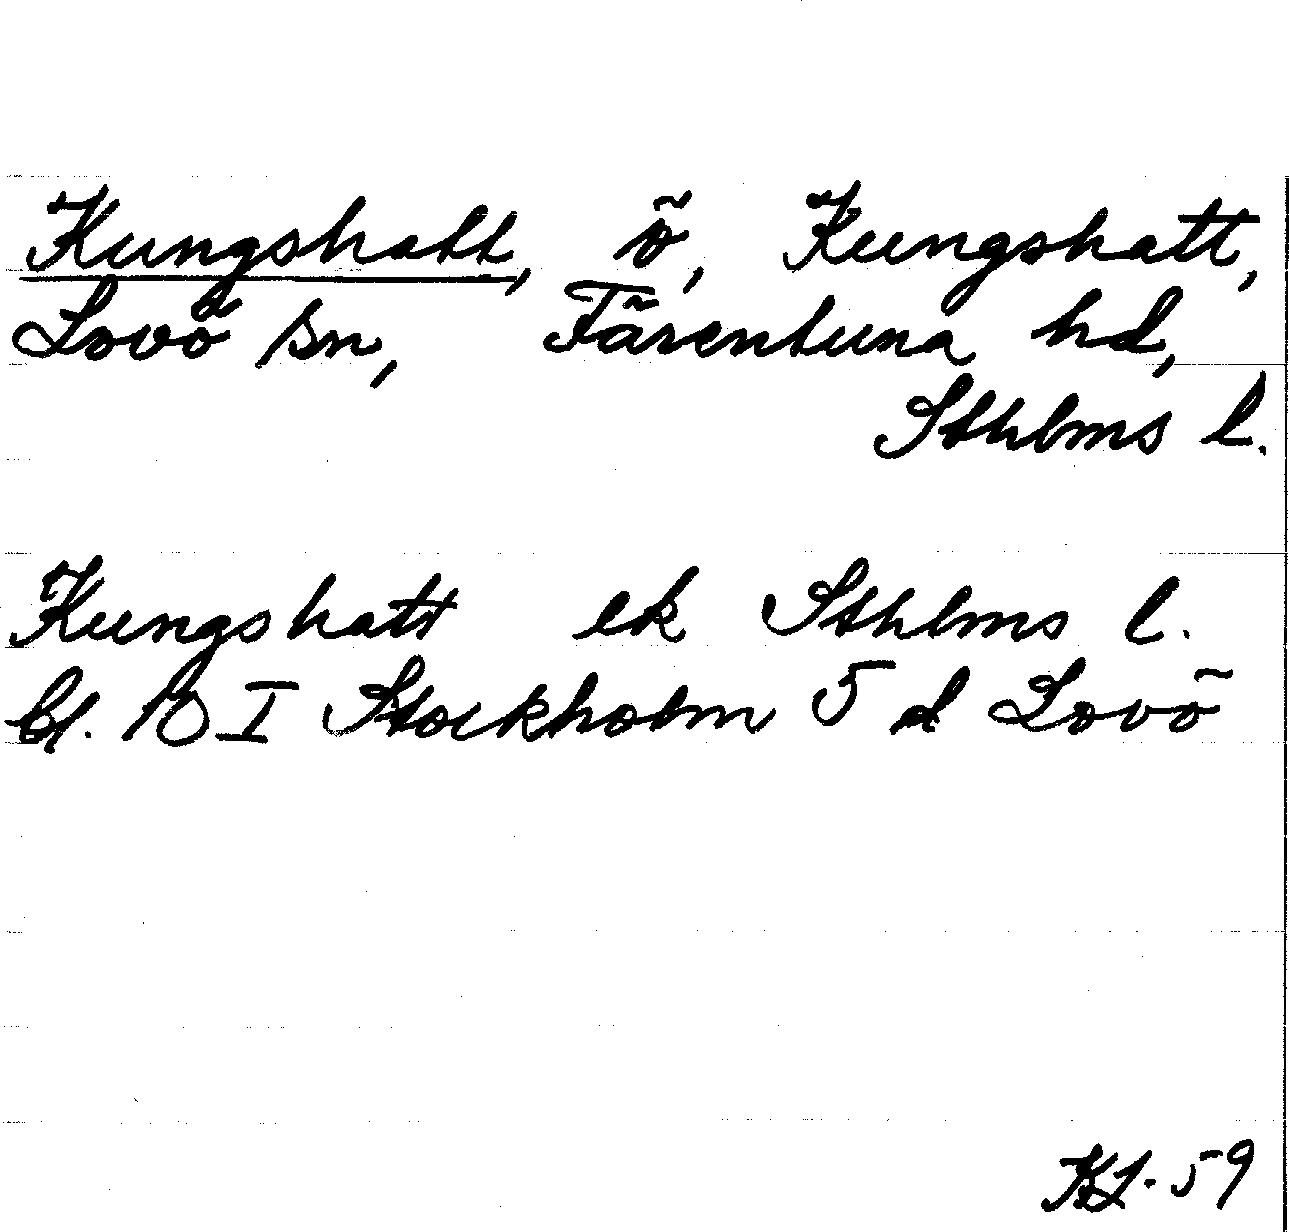 Kungshatt, ö, Kungshatt,
Lovö sn, Färentuna hd,
Sthlms l.
Kungshatt ek Sthlms l.
bl. 10 I Stockholm 5 d Lovö
KL. 59